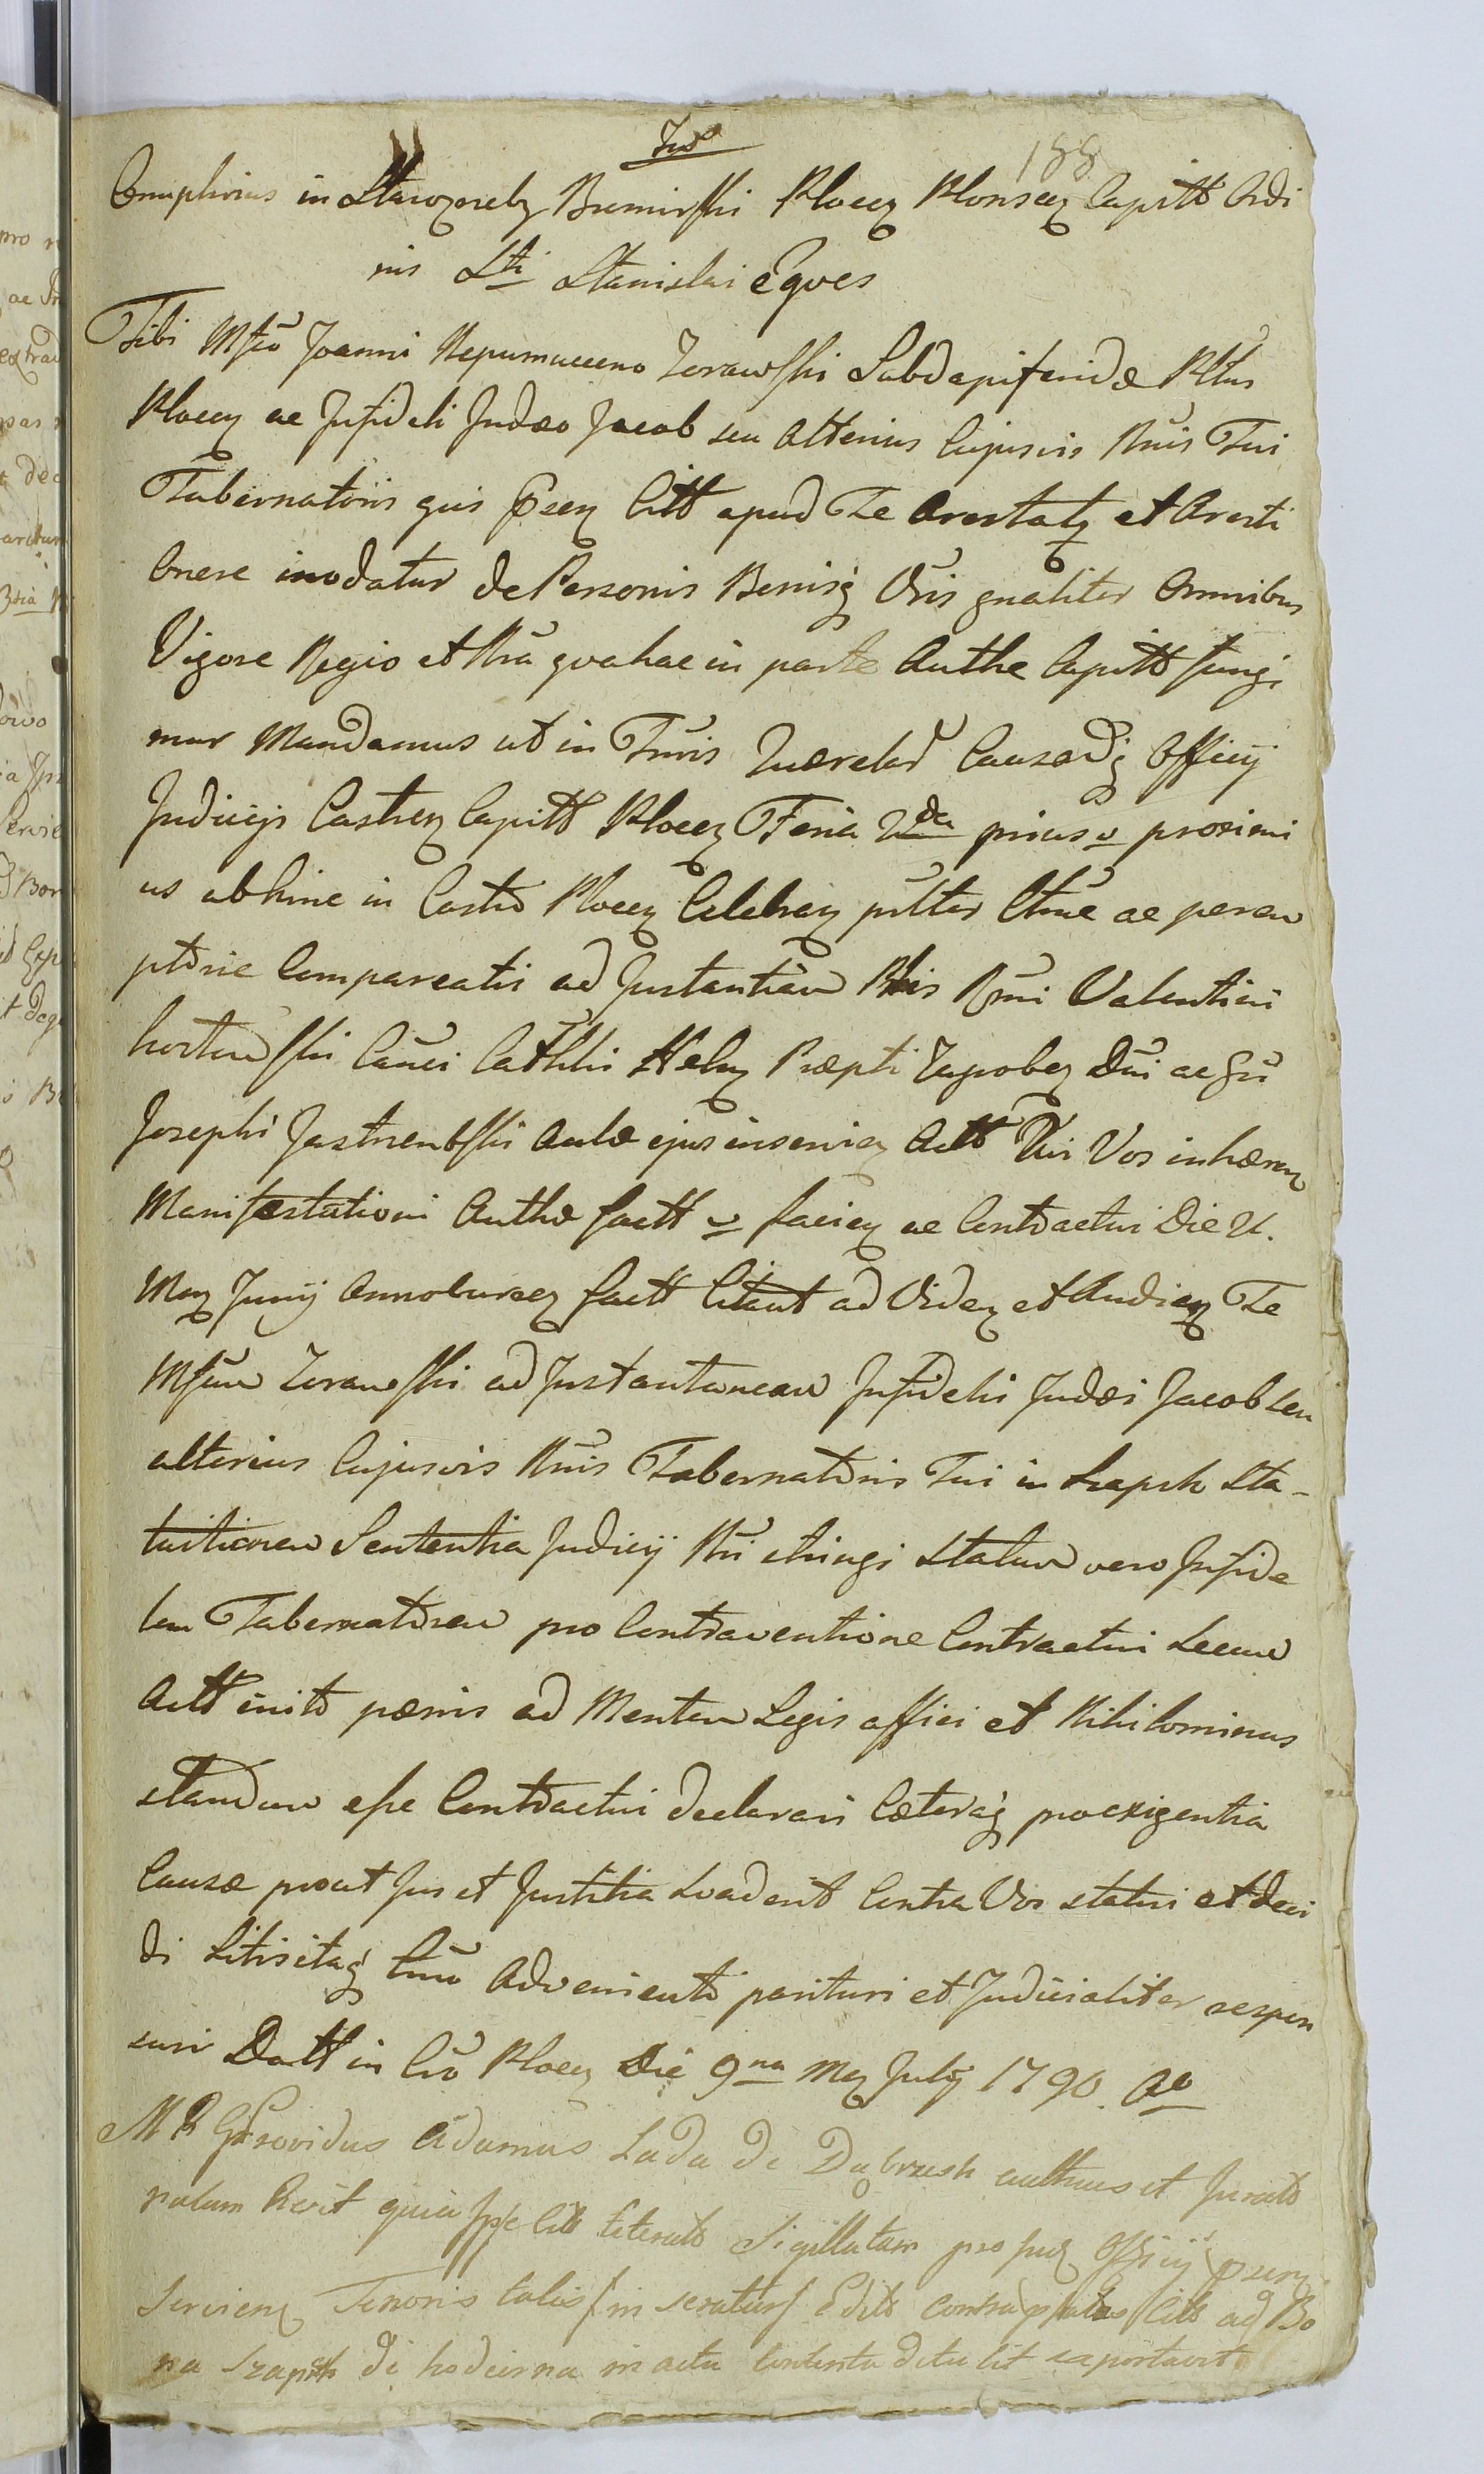 188
Onuphrius in Starozreby Bromirski Plocen Plonscen Capitt Ordi
nis Sti Stanislai Eques
Tibi Mfco Joanni Nepumuceno Zorawski Subdapiferidæ Pltus
Plocen ac Infideli Judæo Jacob seu Alterius Cujusvis Nnis Tui
Tabernatoris qui Psen Citt apud Te Arestatq et Aresti
Onere inodatur de Personis Bonisq Vris gnaliter Omnibus
Vigore Regio et Nra qva hac in parte Authe Capitt fungi
mur Mandamus ut in Trnis Qværelar Causarq Officij
Judicijs Castren Capitt Plocen Feria 2da prius v proximi
us abhinc in Castro Plocen Celebren psltter Ltme ac perem
ptorie Compareatis ad Instantiam Plis Rmi Valentini
Canci Cathlis Præpti Dni ac Gsi
Josephi Jastrzembski Aulæ ejus inservien Actt Qui Vos inhæren
Manifestationi Authæ factt v facien ac Contractui Die
Men Junij Anno curren factt Citant ad Viden et Audien Te
Mfcum Zorawski ad Instantaneam Infidelis Judæi Jacob seu
alterius Cujusvis Nnis Tabernatoris Tui in Szapsk Sta-
tuitionem Sententia Judicij Nri stringi Statum vero Infide
lem Tabernatorem pro Contraventione Contractui Secum
Actt inito pænis ad Mentem Legis affici et Nihilominus
standum esse Contractui declarari Cæteraq pro exigentia
Causæ prout Jus et Justitia Svaderit Contra Vos statui et deci
di Litis itaq Trno Advenienti parituri et Judicialiter respon
suri Datt in Cro Plocen Die 9na Men Julij 1790. Ao
M R G Providus Adamus Lada de Dąbrusk authcus et Jurato
natum Rcvit quia Ipse Citt literatt Sigillatam pro suq Officij psen
Servien Tenoris talis /in seratur/ Edito contra pratos Citt ad Bo
na Szapsk di hodierna in actu Contento detulit reportavit